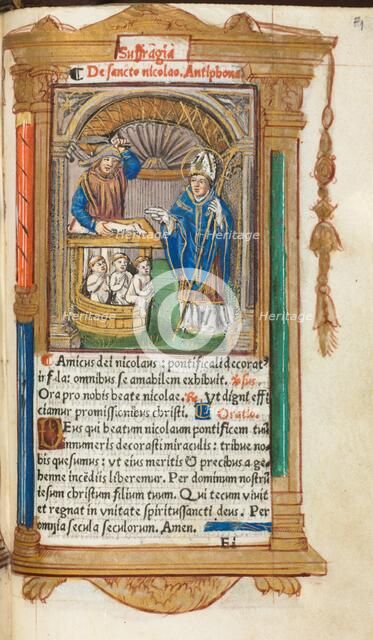 Suffragia
De sancto nicolao. Antiphona
AMicus dei nicolaus : pontificali decorat⁹
infula: omnibus se amabilem exhibuit. Vsus
Ora pro nobis beate nicolae. R. Vt digni effi
ciamur promissionibus christi. Oratio.
DEus qui beatum nicolaum pontificem tuū
innumeris decorasti miraculis : tribue no-
bis quesumus : vt eius meritis & precibus a ge-
henne incēdiis liberemur. Per dominum nostrū
iesum christum filium tuum. Qui tecum viuit
et regnat in vnitate spiritussancti deus. Per
omnia secula seculorum. Amen.